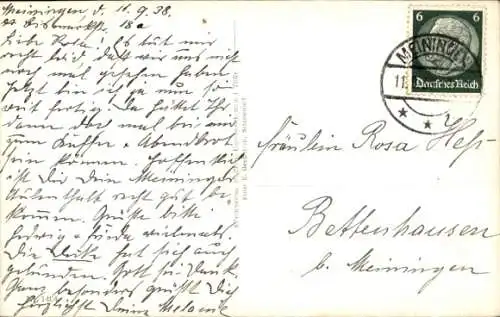 Meiningen d. 11.9.38.
Bismarckstr. 18a
Liebe Rosa! Es tut mir
recht leid, daß wir uns nicht
noch mal gesehen haben.
Jetzt bin ich ja nun so
weit fertig. Da hättet Ihr
dann doch mal bei uns
zum Kaffee + Abendbrot
sein können. Hoffentlich
ist Dir Dein Meininger
Aufenthalt recht gut be-
kommen. Grüße bitte
Hedwig + vielmals.
Die hat sich auch
gefunden. Gott sei Dank.
Ganz besonders grüßt Dich
herzlichst Deine Melanie
6 6
Deutsches Reich
MEININGEN
11
Fräulein Rosa Heß
Bettenhausen
b. Meiningen